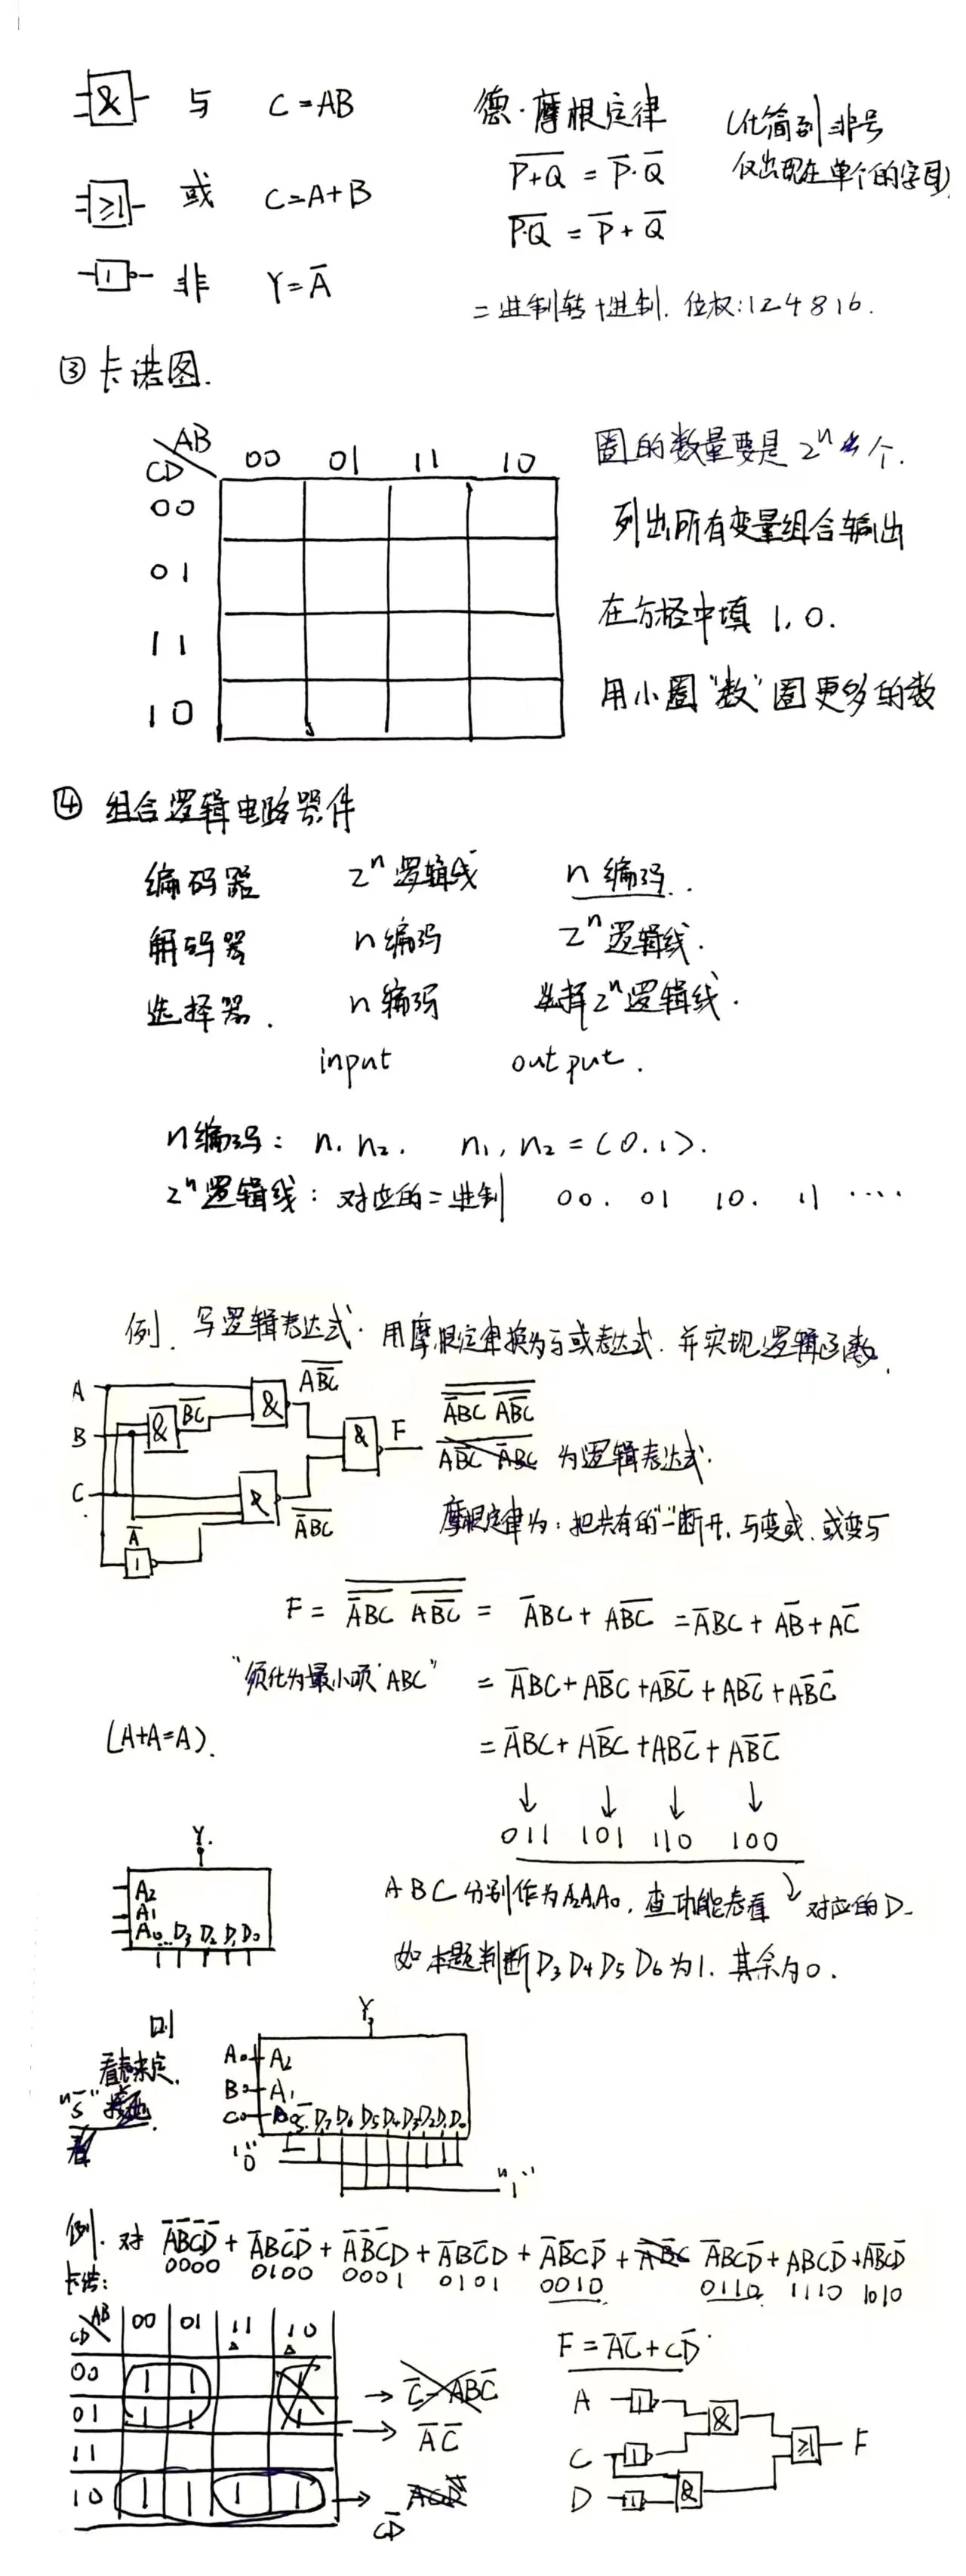 & 与 C=AB
德·摩根定律
(化简到非号
仅出现在单个的字母)
≥1 或 C=A+B
P̅+̅Q̅ = P̅·Q̅
P̅Q̅ = P̅+Q̅
1 非 Y=A̅
二进制转十进制. 位权:1 2 4 8 16.
③ 卡诺图.
AB
CD 00 01 11 10
00
01
11
10
圈的数量要是 2ⁿ 个.
列出所有变量组合输出
在方格中填 1, 0.
用小圈"数"圈更多的数
④ 组合逻辑电路器件
编码器 2ⁿ逻辑线 n 编码..
解码器 n编码 2ⁿ逻辑线.
选择器. n编码 选择2ⁿ逻辑线.
input output.
n编码: n₁ n₂. n₁, n₂ = (0.1).
2ⁿ逻辑线: 对应的二进制 00. 01 10. 11 ····
例. 写逻辑表达式. 用摩根定律换为与或表达式. 并实现逻辑函数.
A B C & B̅C̅ & A̅B̅C̅ & F
A̅ 1 & A̅BC
A̅BC AB̅C̅
为逻辑表达式.
摩根定律为: 把共有的"一"断开, 与变或, 或变与
F = A̅BC AB̅C̅ = A̅BC + AB̅C̅ = A̅BC + AB̅ + AC̅
"须化为最小项"ABC" = A̅BC + AB̅C + AB̅C̅ + ABC̅ + AB̅C̅
(A+A=A). = A̅BC + AB̅C + ABC̅ + AB̅C̅
↓ ↓ ↓ ↓
011 101 110 100
Y.
A₂
A₁
A₀... D₃ D₂ D₁ D₀
ABC 分别作为A₂A₁A₀, 查功能表看 对应的D.
如本题判断 D₃ D₄ D₅ D₆ 为1. 其余为0.
则
"S̅"
Y
A A₂
B A₁
C A₀ S̅ D₇ D₆ D₅ D₄ D₃ D₂ D₁ D₀
"0"
"1"
例. 对 A̅B̅C̅D̅ + A̅BC̅D̅ + A̅B̅C̅D + A̅BC̅D + A̅B̅CD̅ + A̅BCD̅ + ABCD̅ + AB̅CD̅
0000 0100 0001 0101 0010 0110 1110 1010
卡诺:
AB
CD 00 01 11 10
00 1 1
01 1 1
11
10 1 1 1 1
→ A̅C̅
→ CD̅
F = A̅C̅ + CD̅
A 1 &
C 1 ≥1 F
D 1 &